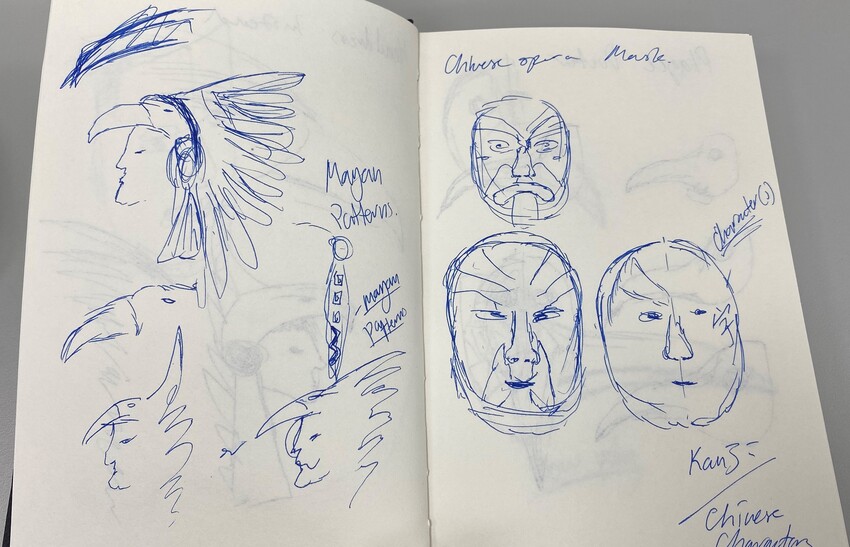 Mayan
Patterns.
mayan
Patterns
or
Chinese opera Mask.
Character(s)
Kanji
Chinese
Characters